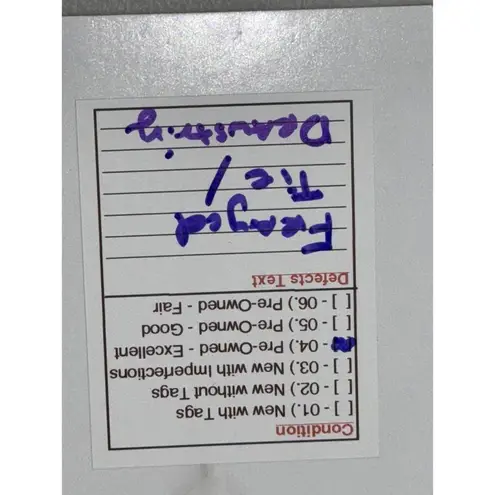 Condition
[ ] - 01.) New with Tags
[ ] - 02.) New without Tags
[ ] - 03.) New with Imperfections
- 04.) Pre-Owned - Excellent
[ ] - 05.) Pre-Owned - Good
[ ] - 06.) Pre-Owned - Fair
Defects Text
Frayed
Tie /
Drawstring